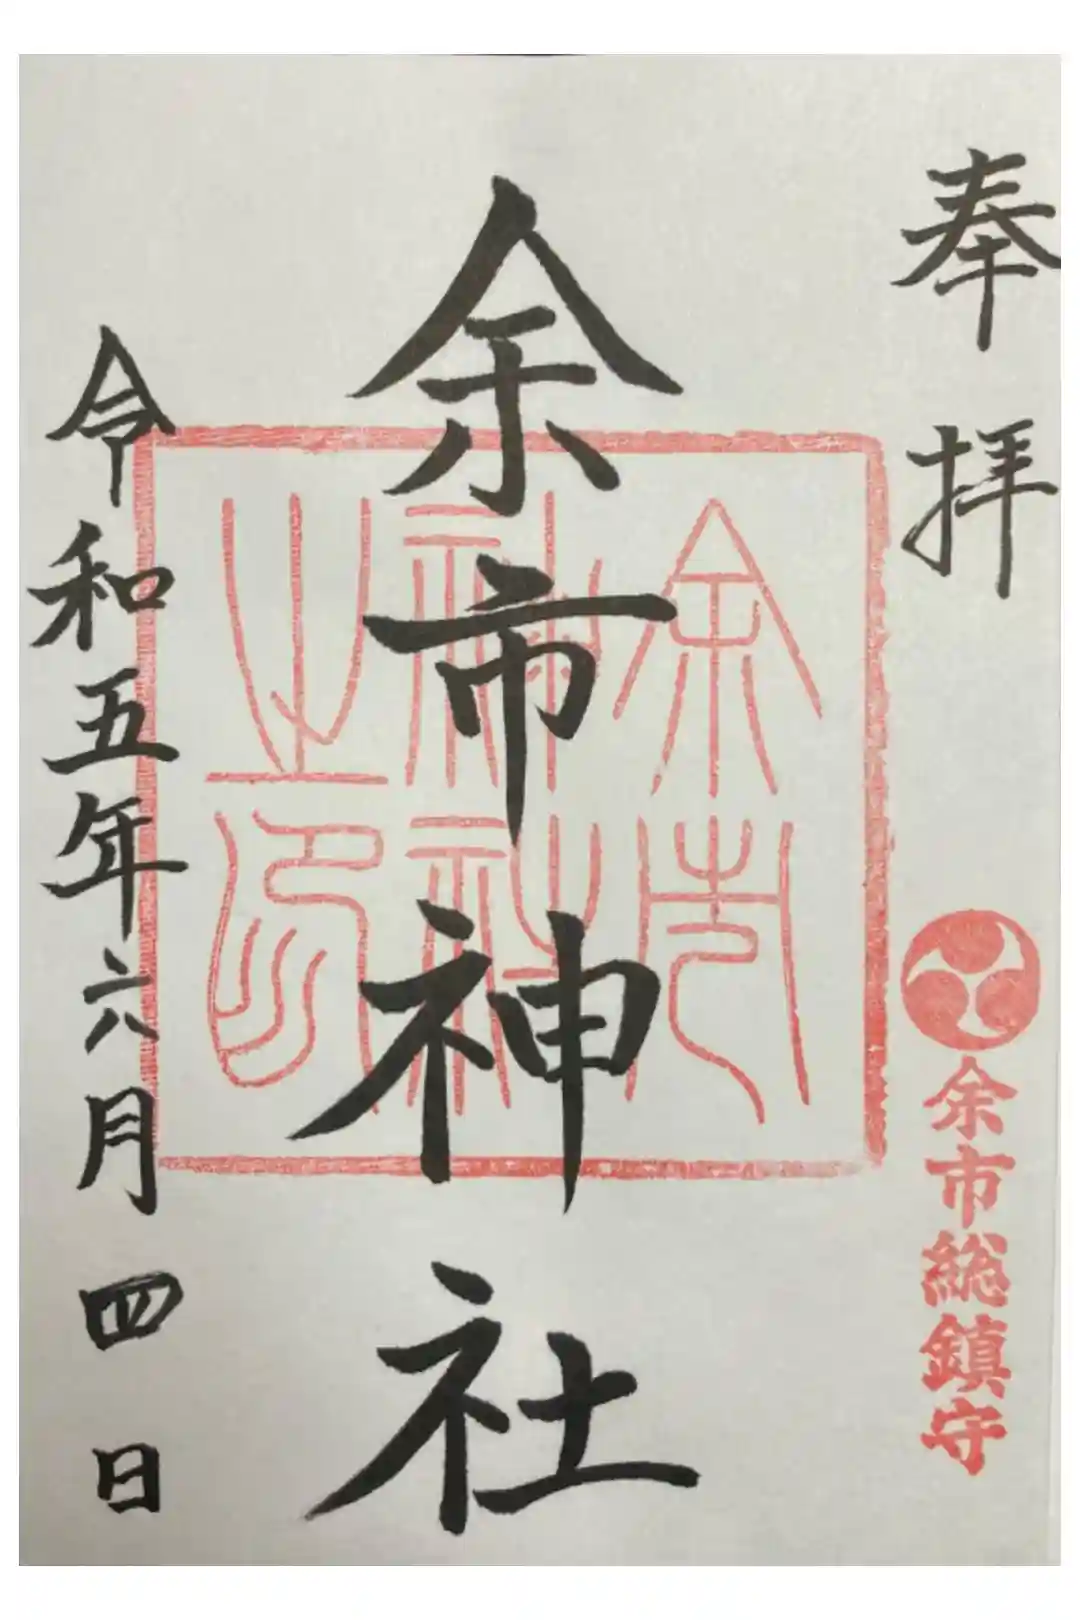 奉拝
余市総鎮守
余市神社
余市
神社
之印
令和五年六月四日